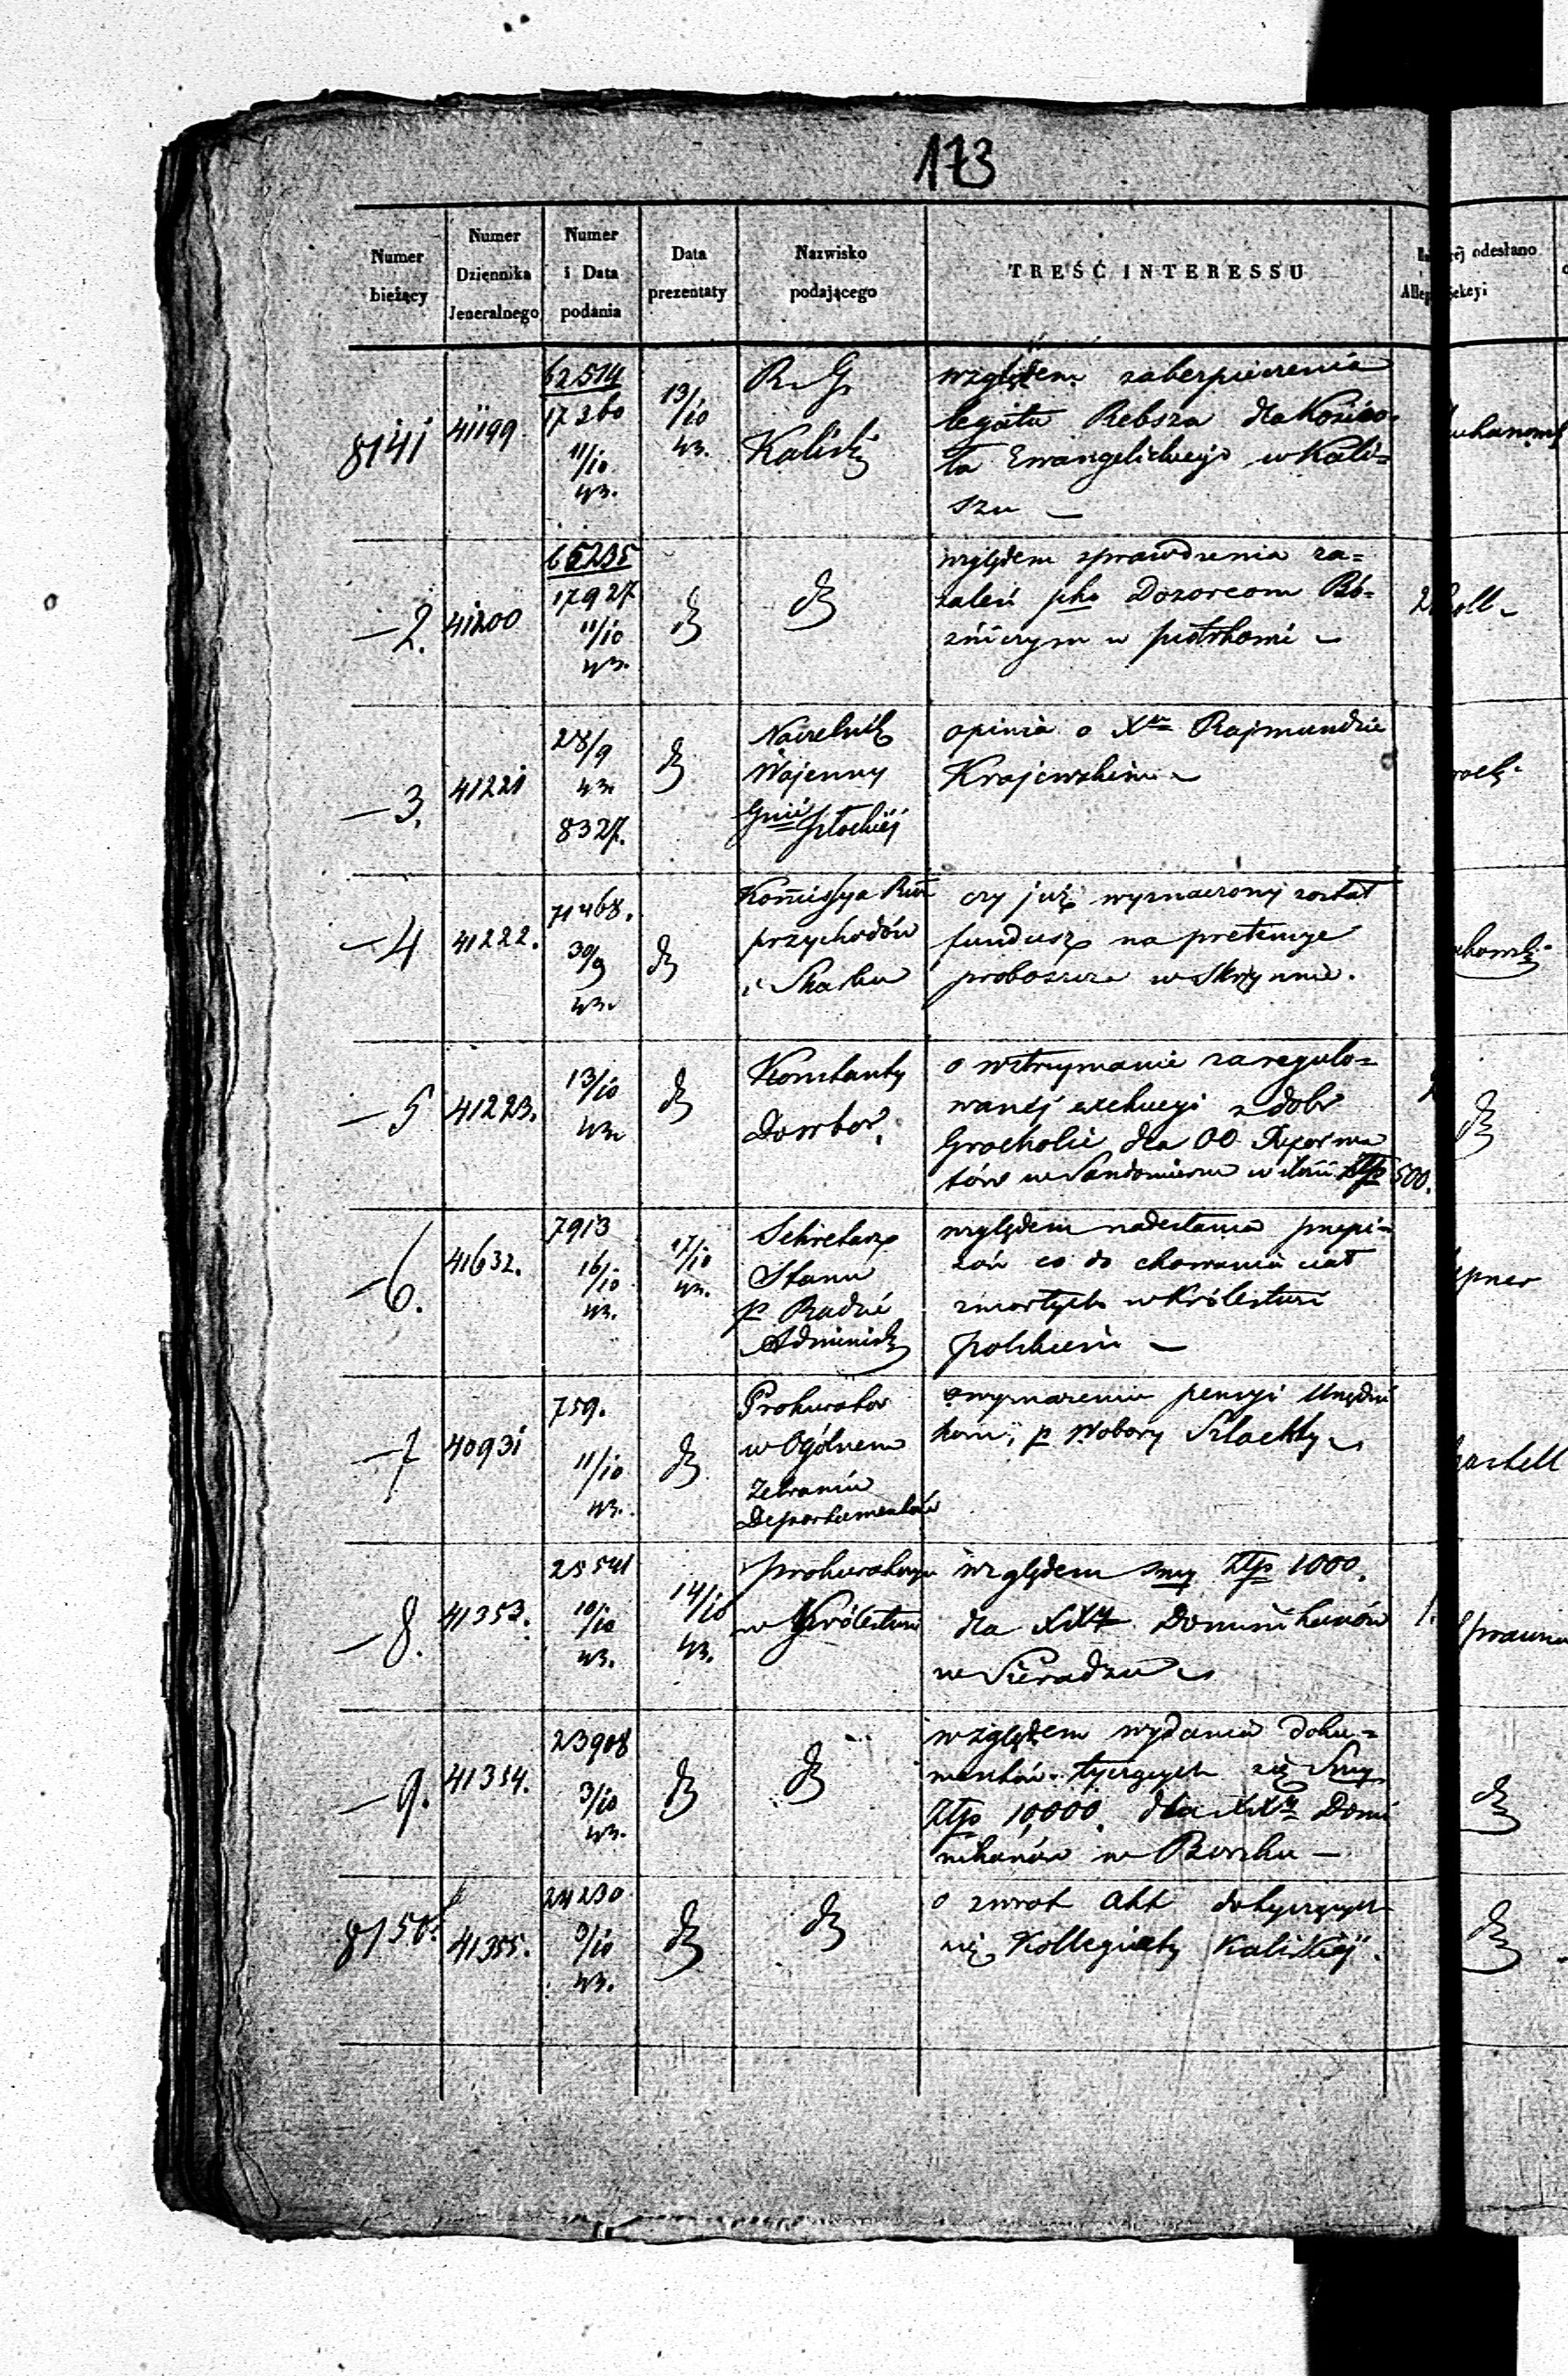 173
Numer bieżący
Numer Dziennika Jeneralnego
Numer i Data podania
Data prezentaty
Nazwisko podającego
TREŚĆ INTERESSU
odesłano
8141
41199
62514
17260
11/10
43.
13/10
43.
R. G.
Kaliski
względem zabezpieczenia
legatu Rebsza dla Kościo-
ła Ewangelickiego w Kali-
szu —
—2.
41200
65235
17927
11/10
43.
względem sprawdzenia za-
żaleń pko Dozorcom Bó-
źniczym w Piotrkowie —
—3.
41221
28/9
43
8327.
Naczelnik
Wojenny
Gnii Płockiej
opinia o Xdzu Rajmundzie
Krajewskim —
—4
41222.
71468.
30/9
43.
Kommissya Rzo
przychodów
i Skarbu
czy już wyznaczony został
fundusz na pretensye
proboszcza w Skrzynnie.
—5
41223.
13/10
43
Konstanty
Dowbor.
o wstrzymanie zaregulo-
wanéj exekucyi z dobr
Grocholic dla OO Reforma
tów w Sandomierzu w ilości Złp 500.
—6.
41632.
7913
16/10
43.
17/10
43.
Sekretarz
Stanu
p Radzie
Administr
względem nadesłania przepi-
sów co do chowania ciał
zmarłych w Królestwie
Polskiem —
—7
40931
759.
11/10
43.
Prokurator
w Ogólnem
Zebraniu
Departamentów
o wyznaczeniu pensyi Urzędni
kom, p Wobory Szlachty
—8.
41353.
25541
10/10
43.
14/10
43.
Prokuratorya
w Królestwie
względem Smy Złp 1000.
dla XXży Dominikanów
w Sieradzu
—9.
41354.
23908
3/10
43.
względem wydania doku-
mentów tyczących się Smy
Złp 10,000. dla XXży Domi
nikanów w Borku —
8150.
41355.
24230
9/10
43.
o zwrot Akt dotyczących
się Kollegiaty Kaliskiéj.